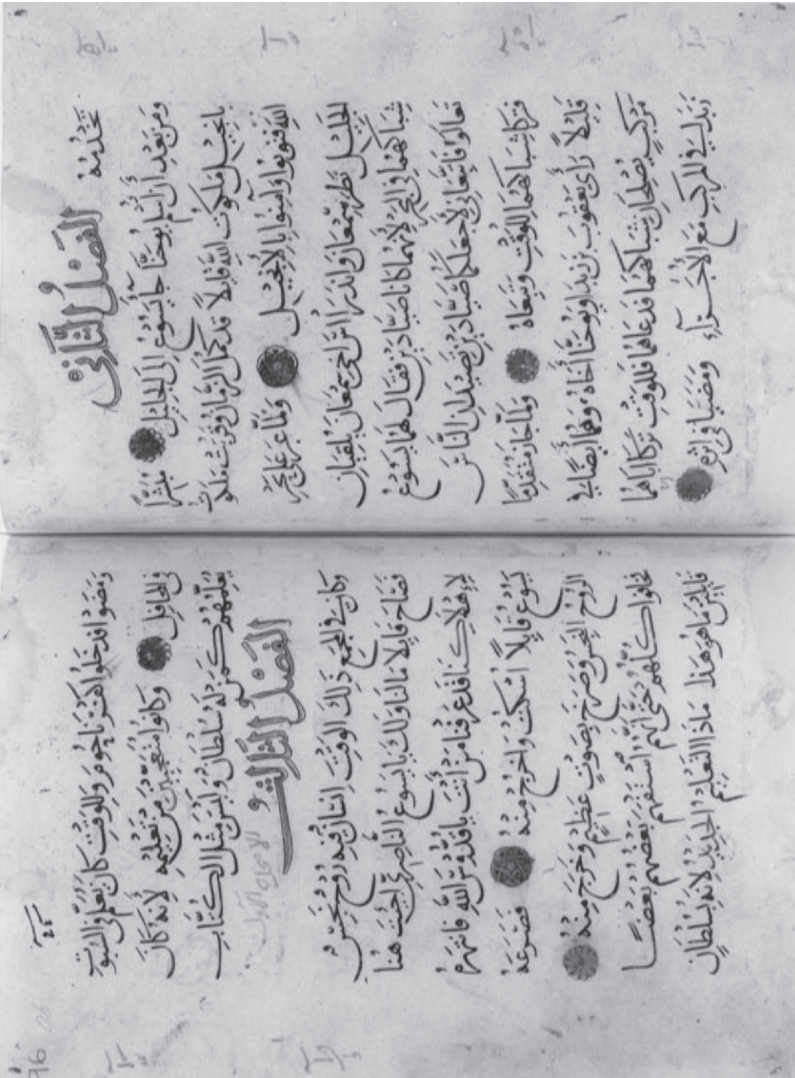 تخدمه
الفصل الثاني
ومن بعد أن أسلم يوحنا جآ يسوع إلى الجليل مبشراً
بانجيل ملكوت الله قايلاً قد كمل الزمان وقربت ملكوت
الله فتوبوا وآمنوا بالإنجيل ولما عبر على بحر
الجليل نظر سمعان واندراس اخي سمعان يلقيان
شباكهما في البحر لأنهما كانا صيادين فقال لهما يسوع
تعالوا فاتبعاني لأجعلكما صيادين تصيدان الناس
فتركا شباكهما للوقت وتبعاه ولما جاز متقدما
قليلاً رأى يعقوب بن زبدا ويوحنا أخاه وهما أيضاً في
مركب يصلحان شباكهما فدعاهما فللوقت تركا اباهما
زبدي في المركب مع الأجرآء ومضيا في اثره
76
ومضوا فدخلوا كفرناحوم وللوقت كان يعلم في السبوت
في المحافل وكانوا متعجبين من تعليمه لأنه كان
يعلمهم كمن له سلطان وليس مثل الكتاب
الفصل الثالث
وكان في المجمع ذلك الوقت انسان فيه روح نجس
فصاح قايلا ما لنا ولك يا يسوع الناصري اجيت هنا
لإهلاكنا قد عرفنا من أنت يا قدوس الله فانتهره
يسوع قايلاً اسكت واخرج منه فصرعه
الروح النجس وصرخ بصوت عظيم وخرج منه
فخافوا كلهم حتى أنهم استفهم بعضهم بعضا
قايلين ما هو هذا ماذا التعليم الجديد لأنه بسلطان